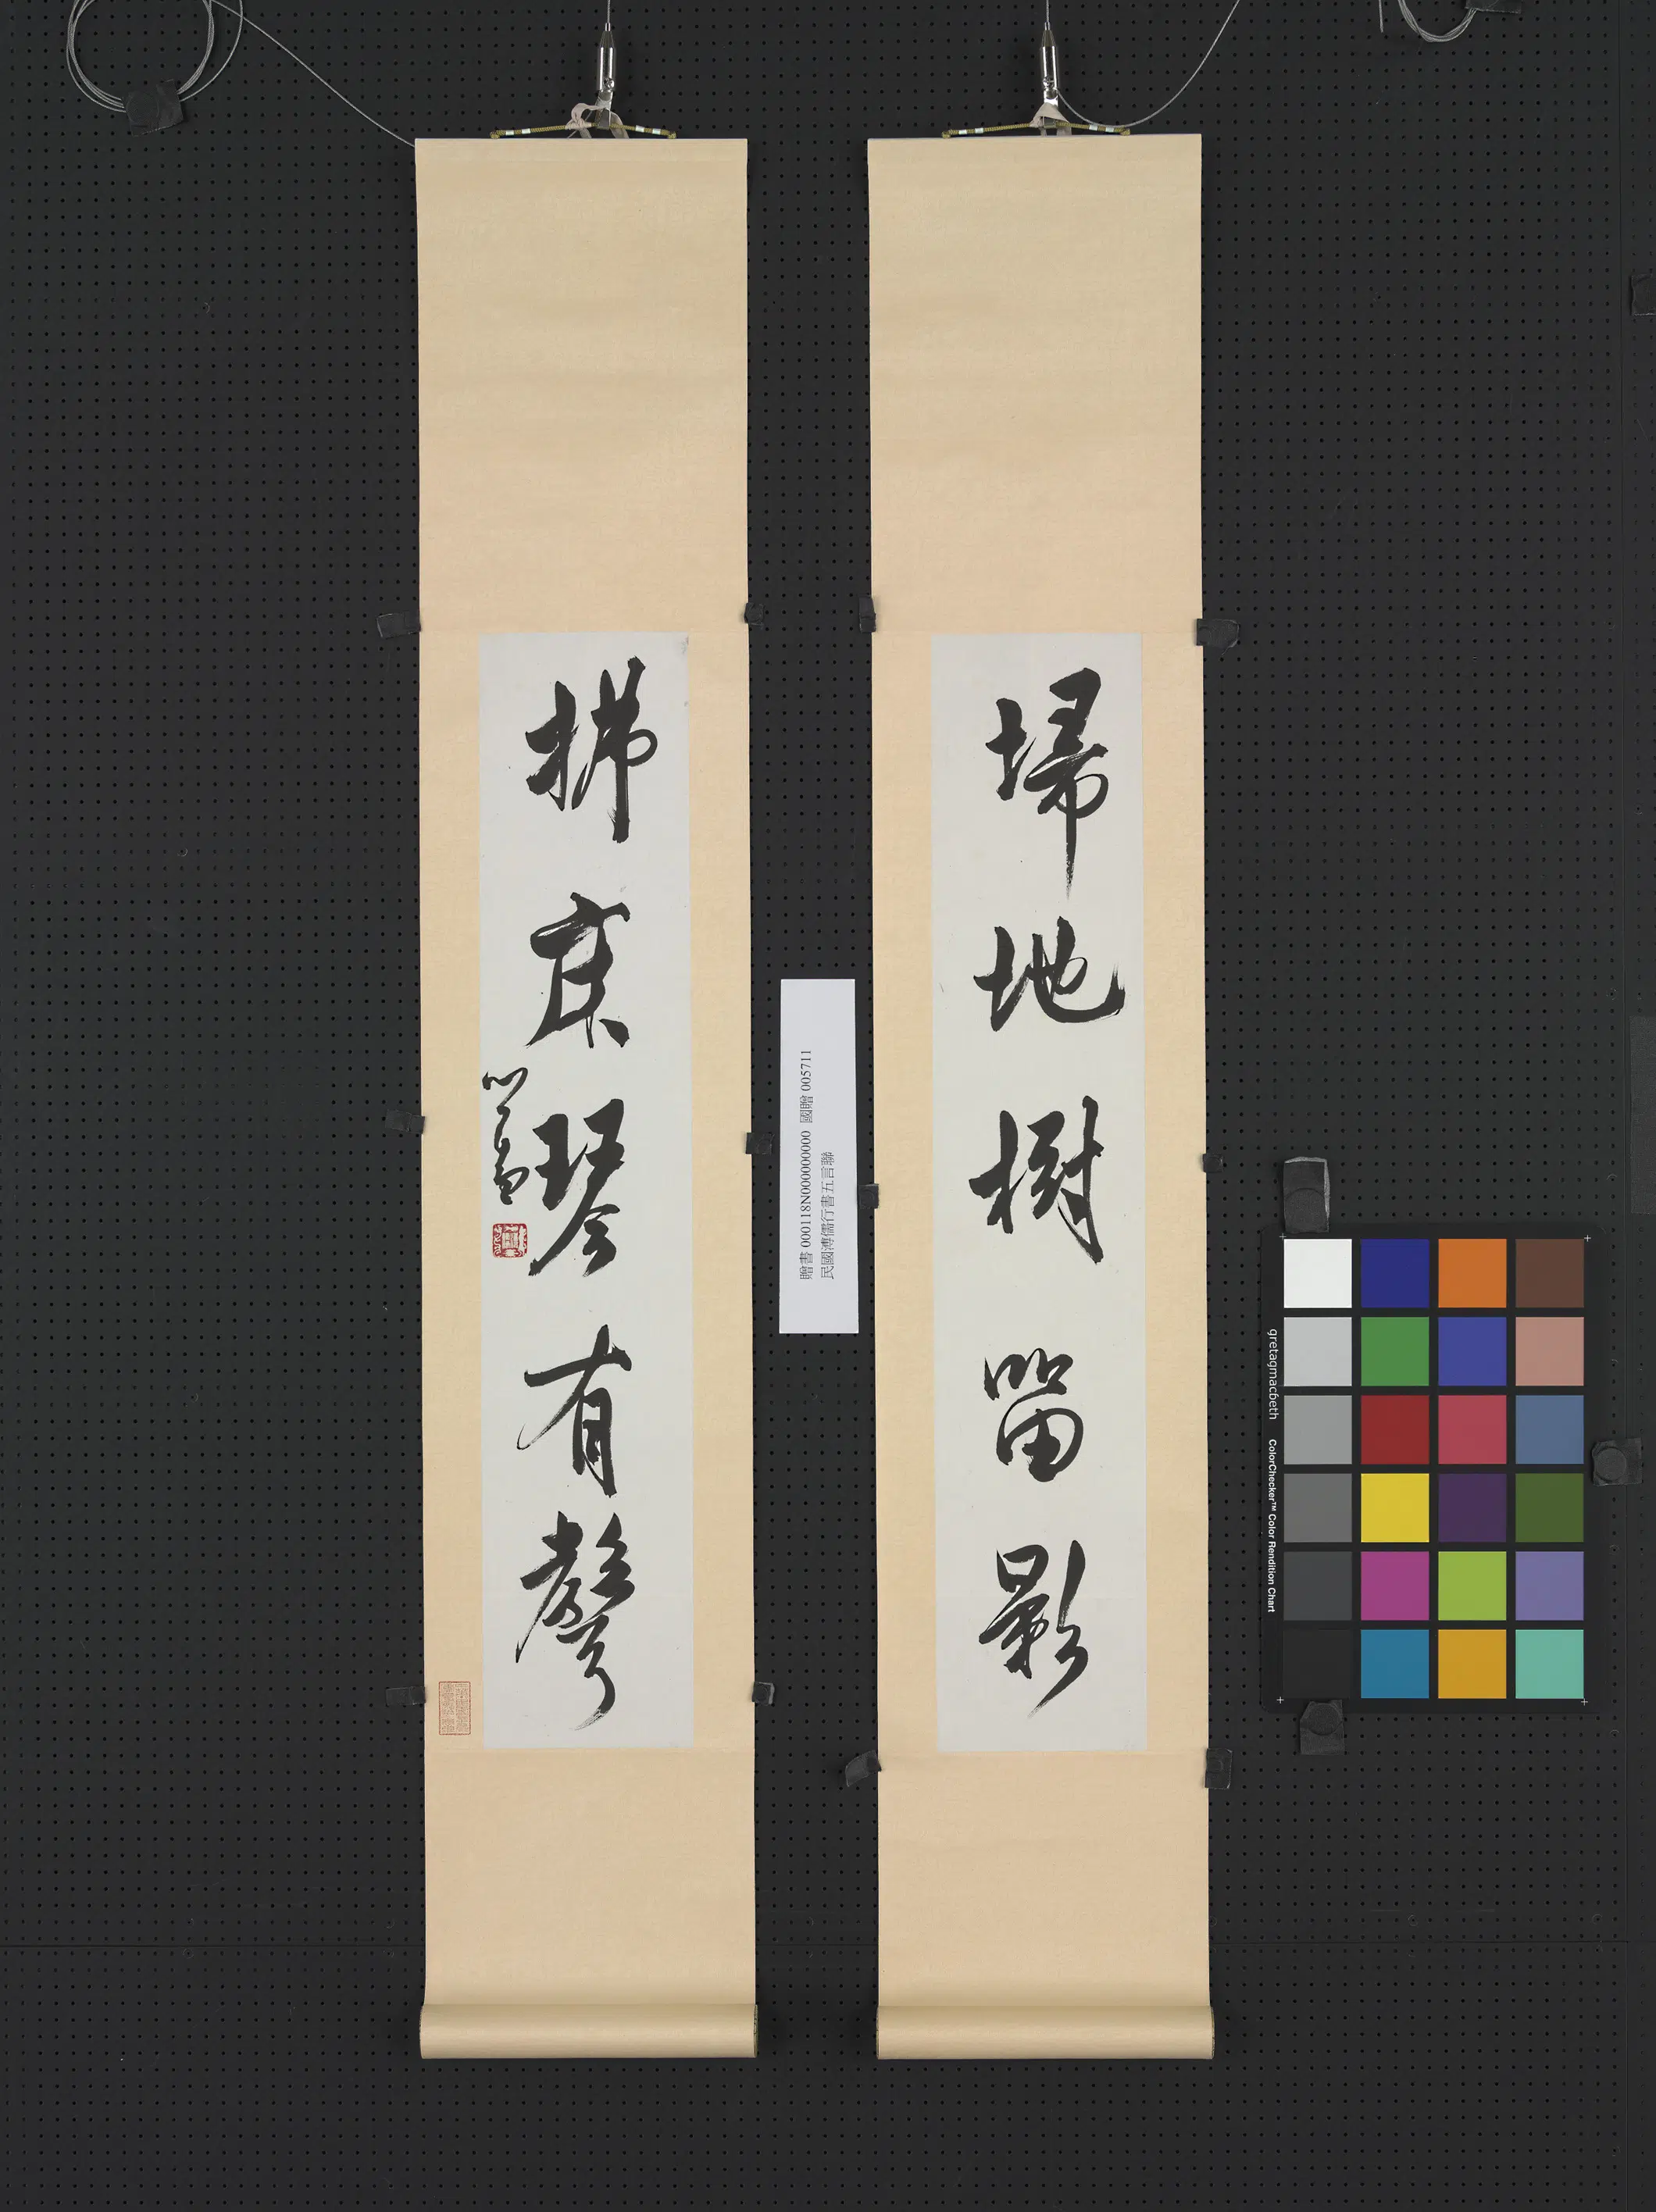 掃地樹留影
拂床琴有聲
心畬
贈書 000118N000000000 國贈 005711
民國溥儒行書五言聯
gretagmacbeth
ColorChecker™ Color Rendition Chart